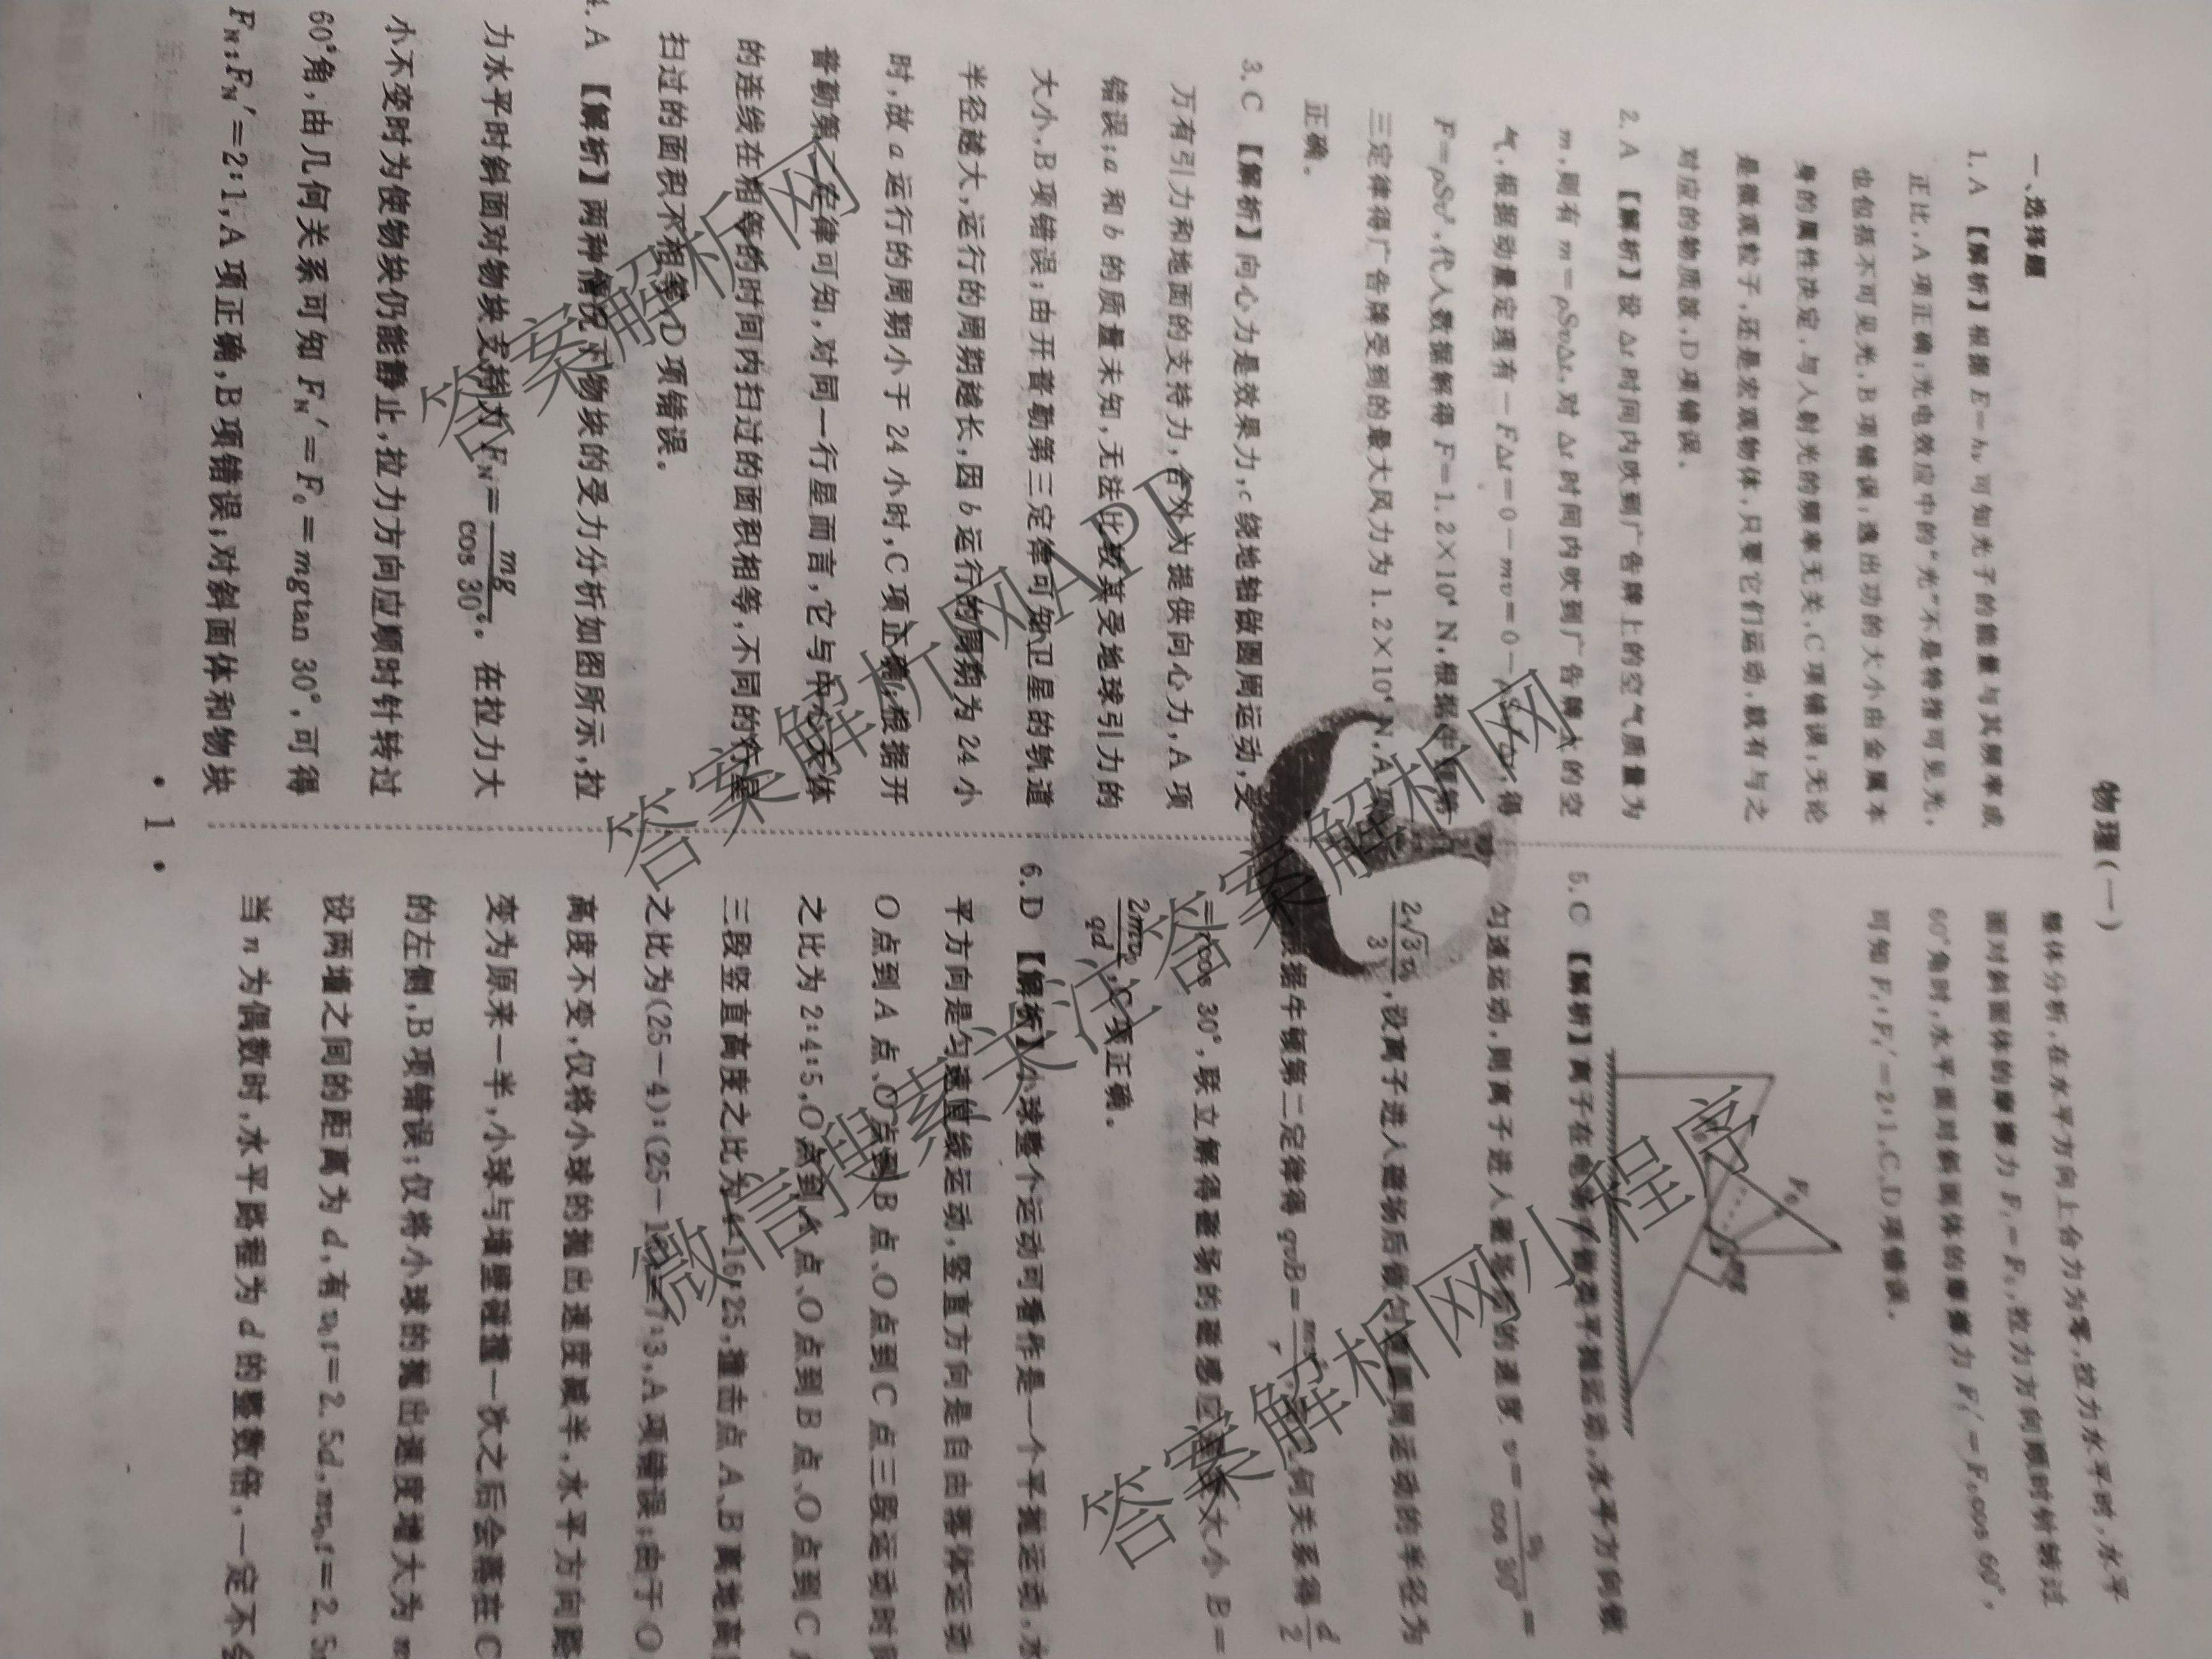 物理(一)
一、选择题
1.A 【解析】根据 E=hν 可知光子的能量与其频率成
正比,A 项正确;光电效应中的“光”不是特指可见光,
也包括不可见光,B 项错误;逸出功的大小由金属本
身的属性决定,与入射光的频率无关,C 项错误;无论
是微观粒子,还是宏观物体,只要它们运动,就有与之
对应的物质波,D 项错误。
2.A 【解析】设 Δt 时间内吹到广告牌上的空气质量为
m,则有 m=ρSvΔt,对 Δt 时间内吹到广告牌上的空
气,根据动量定理有-FΔt=0-mv=0-ρSv²Δt,得
F=ρSv²,代入数据解得 F=1.2×10⁴ N,根据牛顿第
三定律得广告牌受到的最大风力为 1.2×10⁴ N,A 项
正确。
3.C 【解析】向心力是效果力,c 绕地轴做圆周运动,受
万有引力和地面的支持力,合外力提供向心力,A 项
错误;a 和 b 的质量未知,无法比较其受地球引力的
大小,B 项错误;由开普勒第三定律可知,卫星的轨道
半径越大,运行的周期越长,因 b 运行的周期为 24 小
时,故 a 运行的周期小于 24 小时,C 项正确;根据开
普勒第二定律可知,对同一行星而言,它与中心天体
的连线在相等的时间内扫过的面积相等,不同的行星
扫过的面积不相等,D 项错误。
4.A 【解析】两种情况下物块的受力分析如图所示,拉
力水平时斜面对物块支持力 F_N=mg/cos 30°。在拉力大
小不变时为使物块仍能静止,拉力方向应顺时针转过
60°角,由几何关系可知 F_N′=F₀=mgtan 30°,可得
F_N:F_N′=2:1,A 项正确,B 项错误;对斜面体和物块
整体分析,在水平方向上合力为零,拉力水平时,水平
面对斜面体的摩擦力 F_f=F₀,拉力方向顺时针转过
60°角时,水平面对斜面体的摩擦力 F_f′=F₀cos 60°,
可知 F_f:F_f′=2:1,C、D 项错误。
F₀
5.C 【解析】离子在电场中做类平抛运动,水平方向做
匀速运动,则离子进入磁场时的速度 v=v₀/cos 30°=
2√3v₀/3,设离子进入磁场后做匀速圆周运动的半径为
根据牛顿第二定律得 qvB=mv²/r,几何关系得 d/2
=rcos 30°,联立解得磁场的磁感应强度大小 B=
2mv₀/qd,C 项正确。
6.D 【解析】小球整个运动可看作是一个平抛运动,水
平方向是匀速直线运动,竖直方向是自由落体运动
O 点到 A 点、O 点到 B 点、O 点到 C 点三段运动时间
之比为 2:4:5,O 点到 A 点、O 点到 B 点、O 点到 C
三段竖直高度之比为 4:16:25,撞击点 A、B 离地高
之比为(25-4):(25-16)=7:3,A 项错误;由于 O
高度不变,仅将小球的抛出速度减半,水平方向路
变为原来一半,小球与墙壁碰撞一次之后会落在 C
的左侧,B 项错误;仅将小球的抛出速度增大为 n
设两墙之间的距离为 d,有 v₀t=2.5d,nv₀t=2.5
当 n 为偶数时,水平路程为 d 的整数倍,一定不会
• 1 •
答案解析网
答案解析网APP
微信搜索关注答案解析网
答案解析网小程序